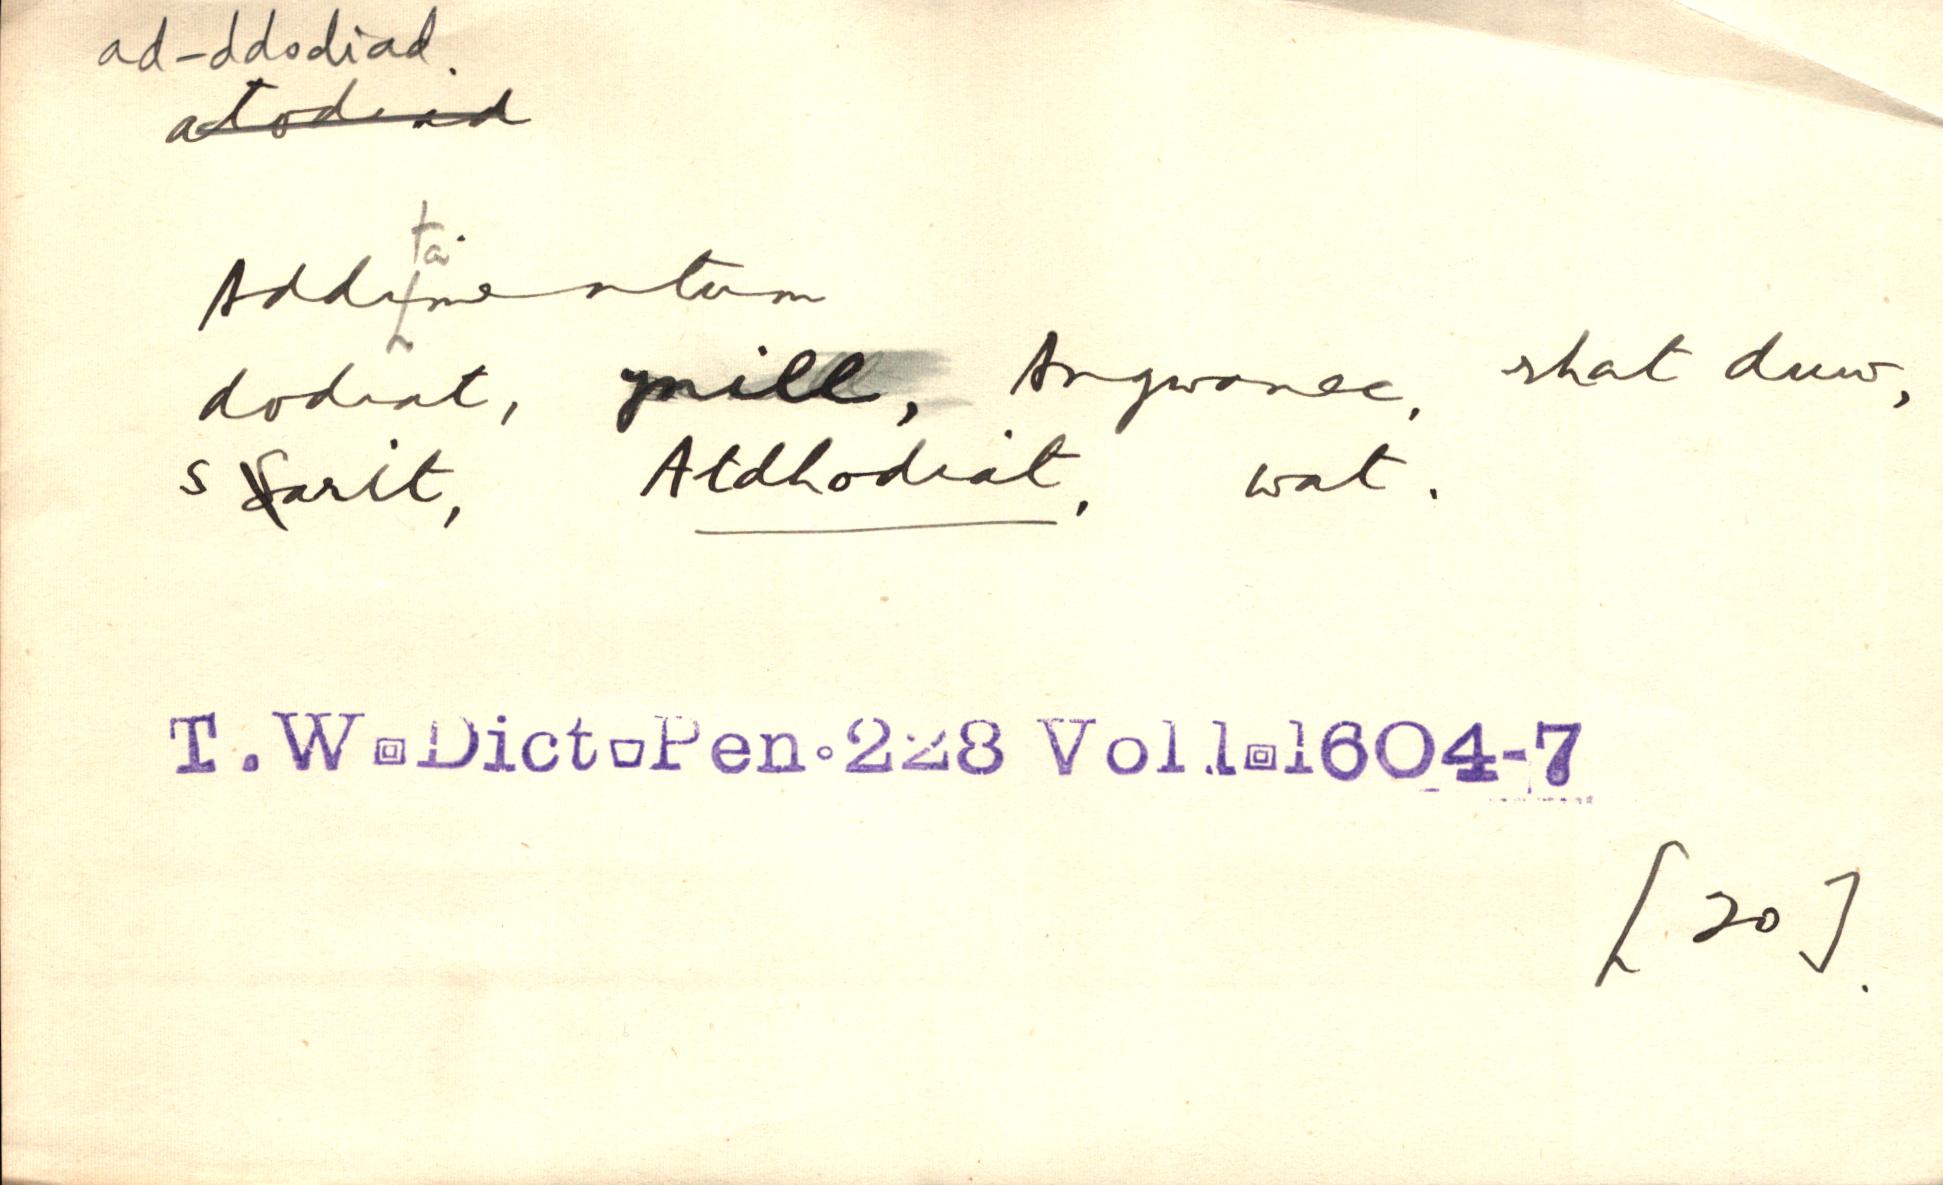 ad-ddodiad.
atodiad
ta
Addimentum
dodiat, ynill, Angwanec, rhat duw,
s farit, Atdhodiat, wat.
T.W. Dict. Pen. 228 Vol 1. 1604-7
[20].